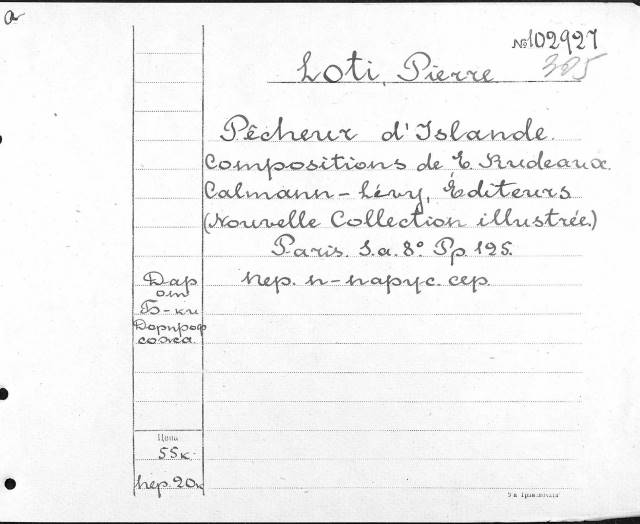 а
№102927
305
Loti, Pierre
Pêcheur d'Islande.
Compositions de E. Rudeaux.
Calmann-Lévy, Éditeurs
(Nouvelle Collection illustrée.)
Paris. S. a. 8º Pp. 125.
пер. п-парус. сер.
Дар
от
Б-ки
Дорпроф
сожа
Цена
55к.
пер. 20к